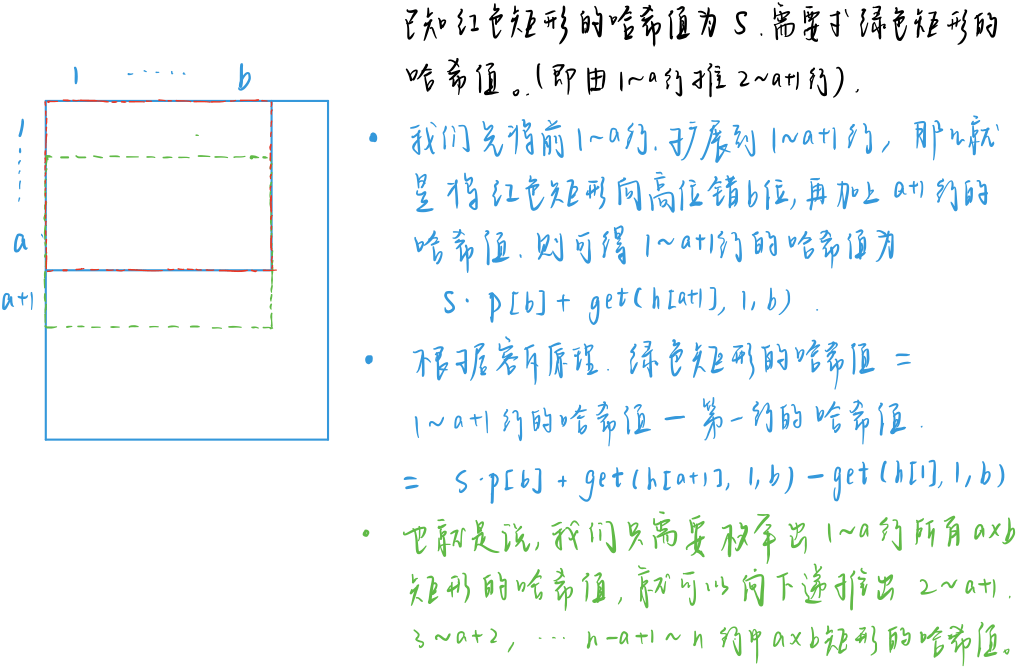 1 ...... b
1
⋮
a
a+1
已知红色矩形的哈希值为 S. 需要求绿色矩形的
哈希值。(即由 1~a行推 2~a+1行).
• 我们先将前 1~a行. 扩展到 1~a+1行, 那么就
是将红色矩形向高位错b位, 再加上 a+1 行的
哈希值. 则可得 1~a+1行的哈希值为
S· p[b] + get(h[a+1], 1, b) .
• 根据容斥原理. 绿色矩形的哈希值 =
1~a+1 行的哈希值 - 第一行的哈希值.
= S·p[b] + get(h[a+1], 1, b) - get(h[1], 1, b)
• 也就是说, 我们只需要枚举出 1~a行所有 a×b
矩形的哈希值, 就可以向下递推出 2~a+1.
3~a+2, ··· n-a+1~n 行中 a×b矩形的哈希值。